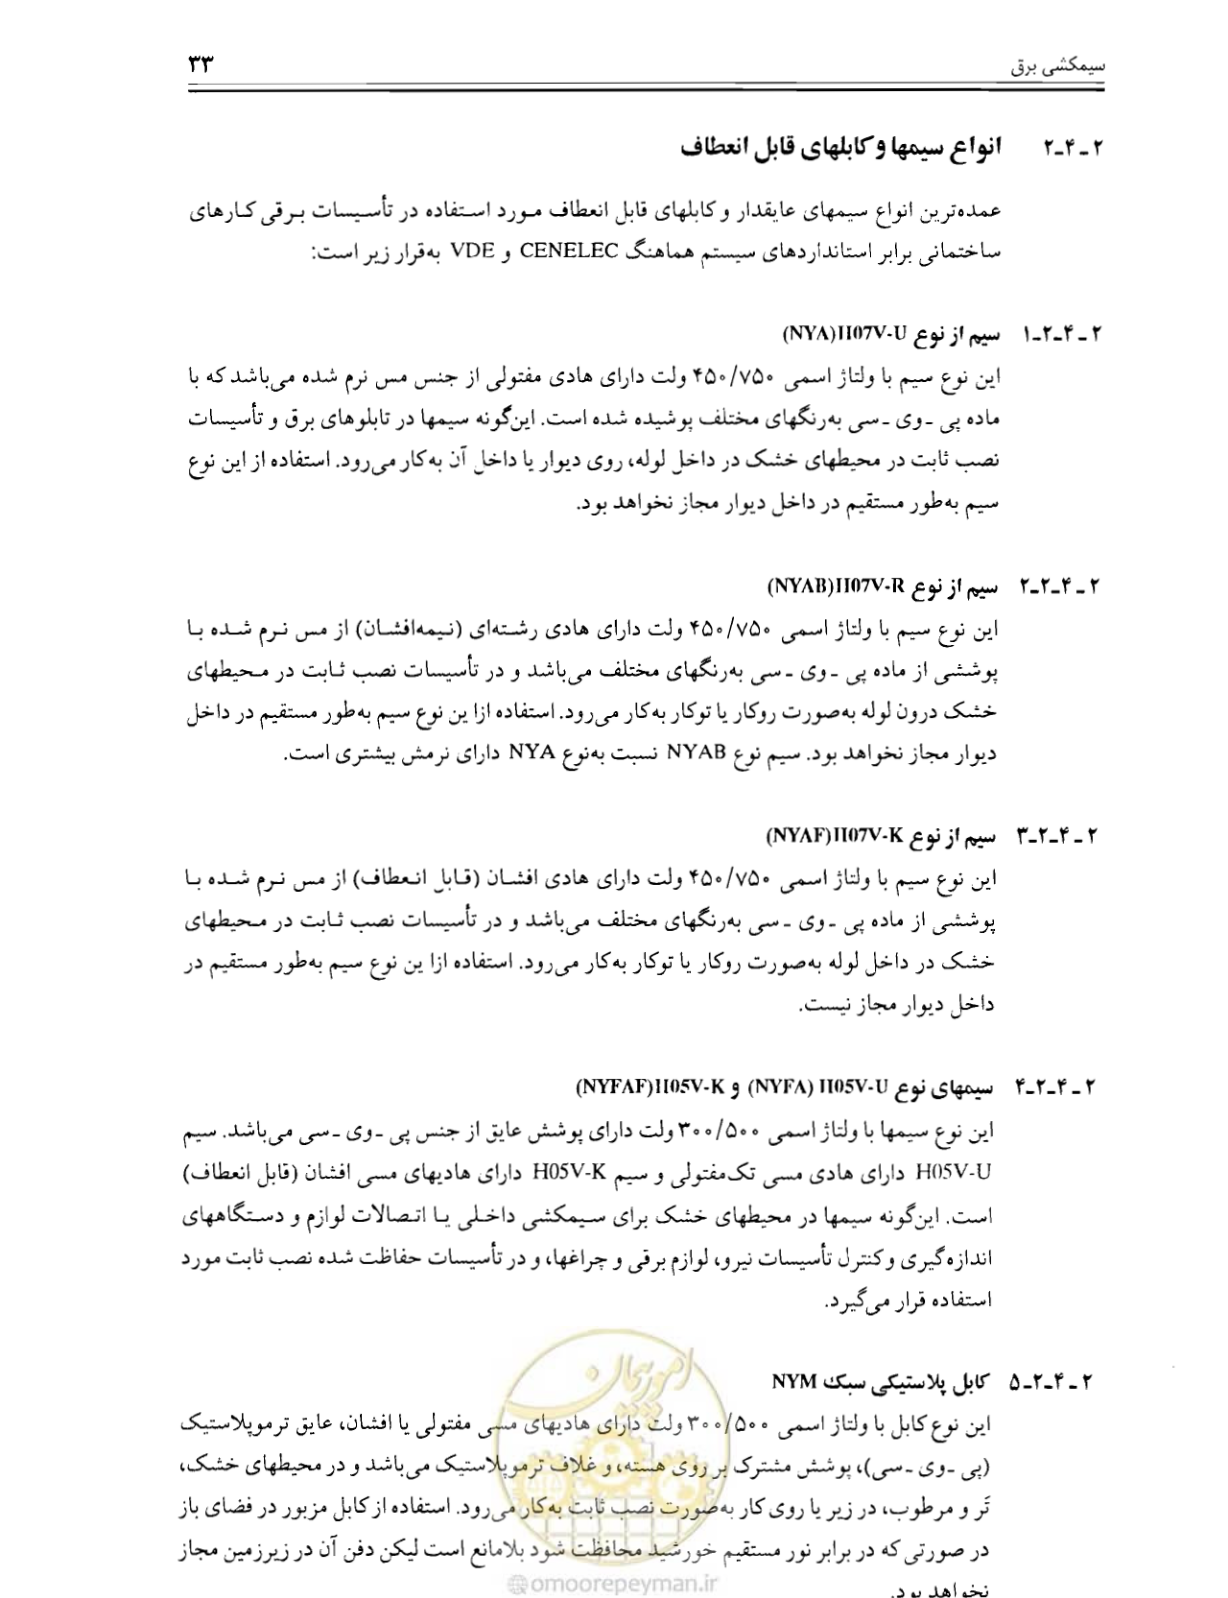 سیمکشی برق ۳۳
۲-۴-۲ انواع سیمها و کابلهای قابل انعطاف
عمده‌ترین انواع سیمهای عایقدار و کابلهای قابل انعطاف مورد استفاده در تأسیسات برقی کارهای
ساختمانی برابر استانداردهای سیستم هماهنگ CENELEC و VDE به‌قرار زیر است:
۲-۴-۲-۱ سیم از نوع H07V-U(NYA)
این نوع سیم با ولتاژ اسمی ۴۵۰/۷۵۰ ولت دارای هادی مفتولی از جنس مس نرم شده می‌باشد که با
ماده پی - وی - سی به‌رنگهای مختلف پوشیده شده است. این‌گونه سیمها در تابلوهای برق و تأسیسات
نصب ثابت در محیطهای خشک در داخل لوله، روی دیوار یا داخل آن به‌کار می‌رود. استفاده از این نوع
سیم به‌طور مستقیم در داخل دیوار مجاز نخواهد بود.
۲-۴-۲-۲ سیم از نوع H07V-R(NYAB)
این نوع سیم با ولتاژ اسمی ۴۵۰/۷۵۰ ولت دارای هادی رشته‌ای (نیمه‌افشان) از مس نرم شده با
پوششی از ماده پی - وی - سی به‌رنگهای مختلف می‌باشد و در تأسیسات نصب ثابت در محیطهای
خشک درون لوله به‌صورت روکار یا توکار به‌کار می‌رود. استفاده ازا ین نوع سیم به‌طور مستقیم در داخل
دیوار مجاز نخواهد بود. سیم نوع NYAB نسبت به‌نوع NYA دارای نرمش بیشتری است.
۲-۴-۲-۳ سیم از نوع H07V-K(NYAF)
این نوع سیم با ولتاژ اسمی ۴۵۰/۷۵۰ ولت دارای هادی افشان (قابل انعطاف) از مس نرم شده با
پوششی از ماده پی - وی - سی به‌رنگهای مختلف می‌باشد و در تأسیسات نصب ثابت در محیطهای
خشک در داخل لوله به‌صورت روکار یا توکار به‌کار می‌رود. استفاده ازا ین نوع سیم به‌طور مستقیم در
داخل دیوار مجاز نیست.
۲-۴-۲-۴ سیمهای نوع H05V-U (NYFA) و H05V-K(NYFAF)
این نوع سیمها با ولتاژ اسمی ۳۰۰/۵۰۰ ولت دارای پوشش عایق از جنس پی - وی - سی می‌باشد. سیم
H05V-U دارای هادی مسی تک‌مفتولی و سیم H05V-K دارای هادیهای مسی افشان (قابل انعطاف)
است. این‌گونه سیمها در محیطهای خشک برای سیمکشی داخلی یا اتصالات لوازم و دستگاههای
اندازه‌گیری و کنترل تأسیسات نیرو، لوازم برقی و چراغها، و در تأسیسات حفاظت شده نصب ثابت مورد
استفاده قرار می‌گیرد.
۲-۴-۲-۵ کابل پلاستیکی سبک NYM
این نوع کابل با ولتاژ اسمی ۳۰۰/۵۰۰ ولت دارای هادیهای مسی مفتولی یا افشان، عایق ترموپلاستیک
(پی - وی - سی)، پوشش مشترک بر روی هسته، و غلاف ترموپلاستیک می‌باشد و در محیطهای خشک،
تَر و مرطوب، در زیر یا روی کار به‌صورت نصب ثابت به‌کار می‌رود. استفاده از کابل مزبور در فضای باز
در صورتی که در برابر نور مستقیم خورشید محافظت شود بلامانع است لیکن دفن آن در زیرزمین مجاز
نخواهد بود.
امور پیمان
omoorepeyman.ir